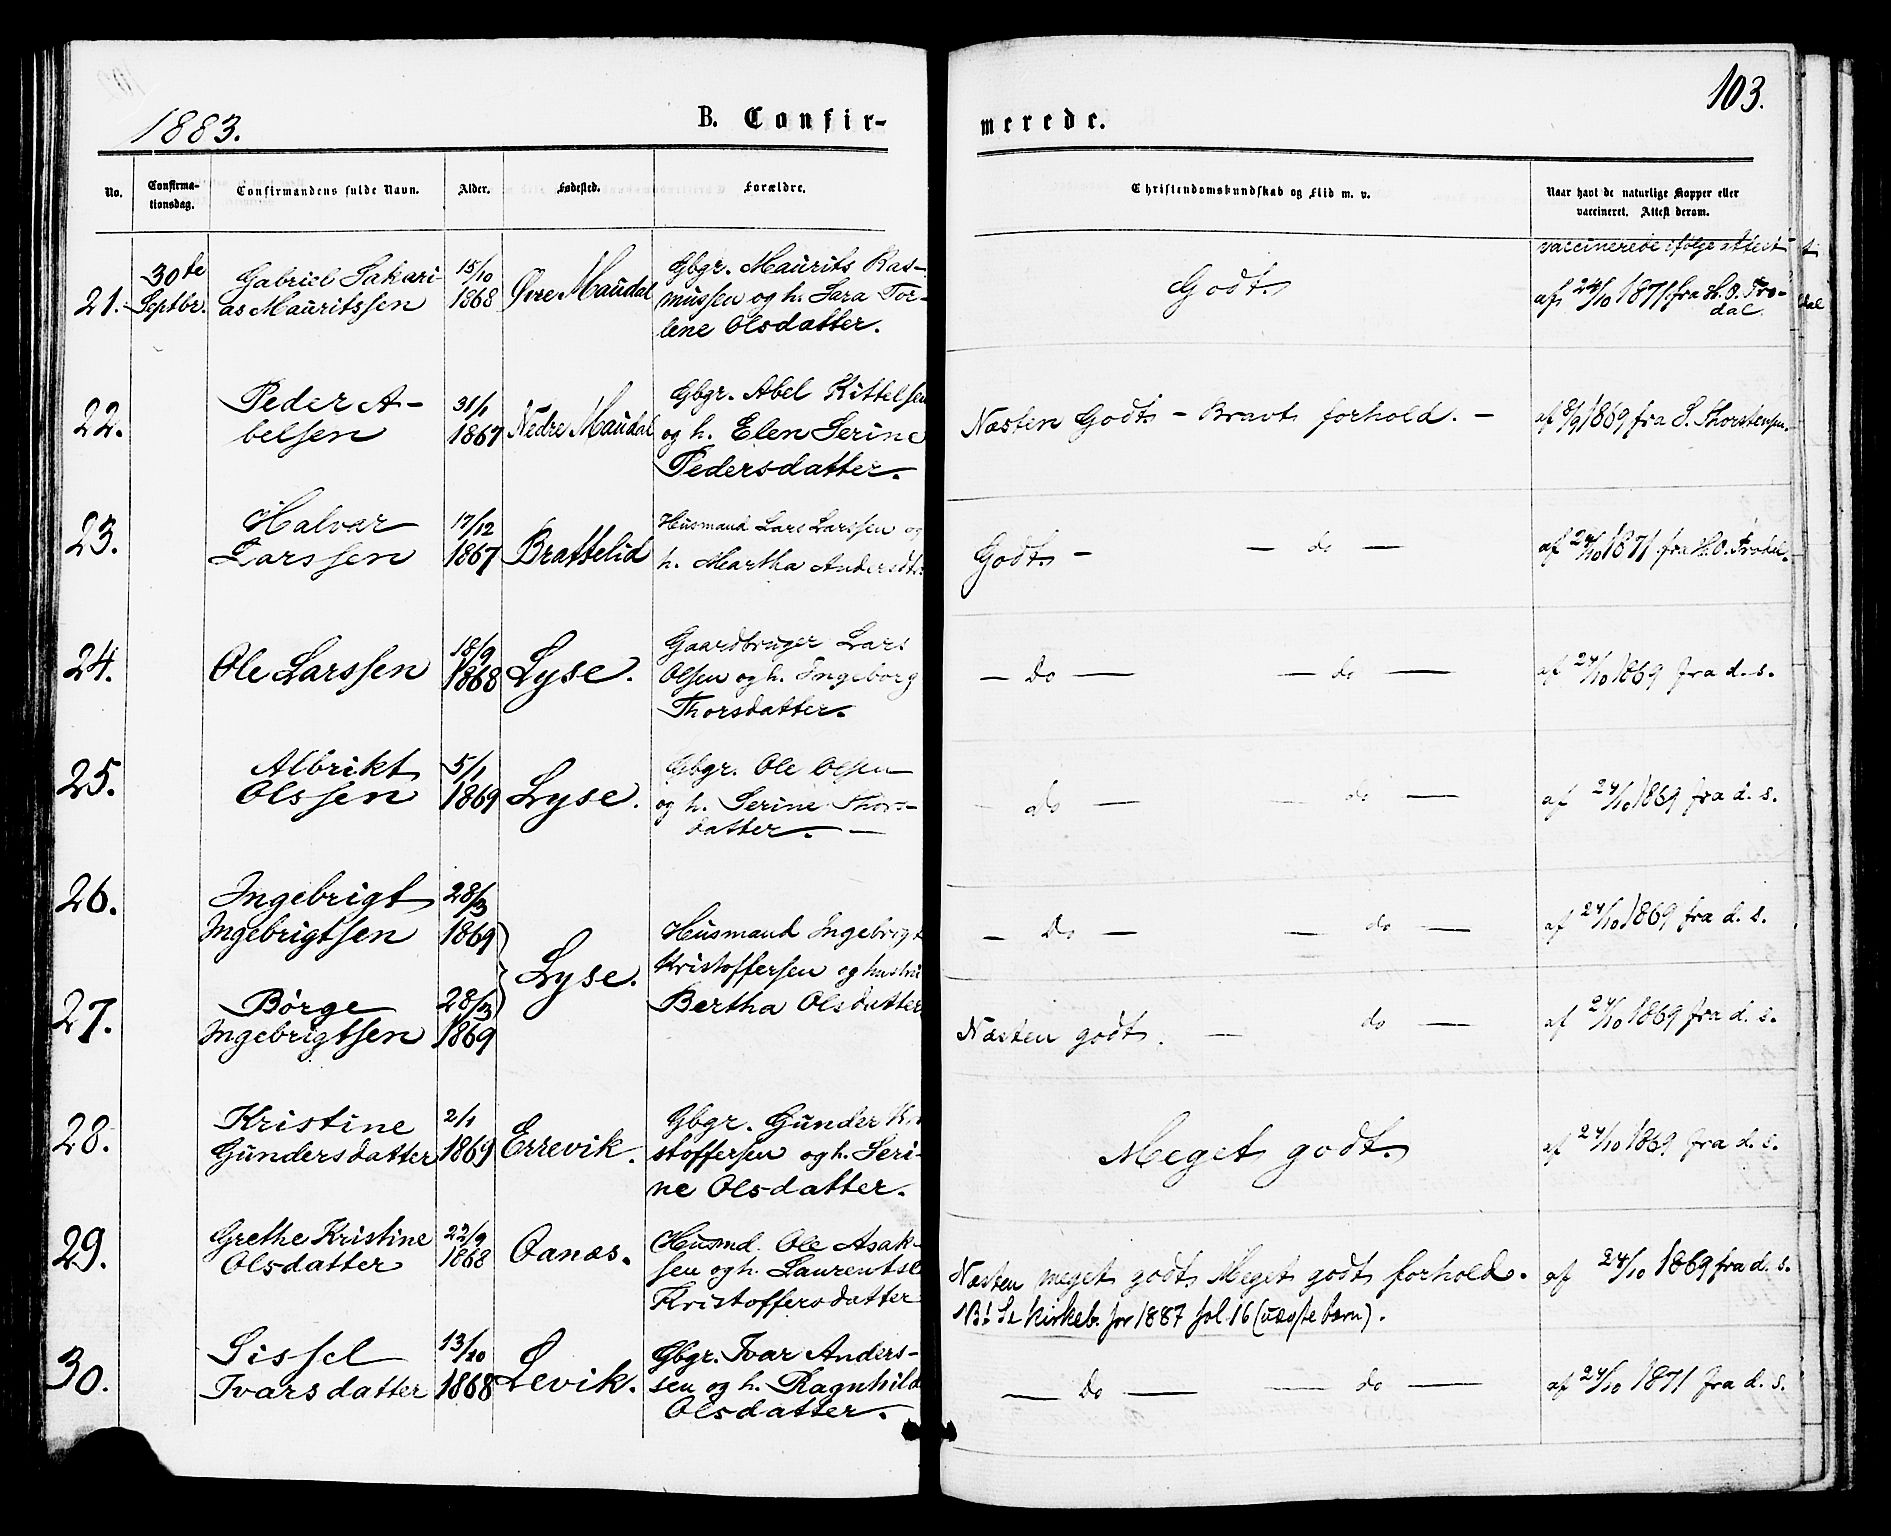 103.
1883.
B. Confir-
merede.
No.
Confirma-
tionsdag.
Confirmandens fulde Navn.
Alder.
Fødested.
Forældre.
Christendomskundskab og Flid m. v.
Naar havt de naturlige Kopper eller
vaccineret. Attest derom.
21.
30te
Septbr.
Gabriel Sakari-
as Mauritssen
15/10
1868
Øvre Maudal
Gbgr. Maurits Ras-
mussen og h. Sara Tor-
lene Olsdatter.
Godt.
vaccinerede ifølge attest
af 24/10 1871 fra H. O. Fro-
dal.
22.
Peder A-
belsen
31/1
1867
Nedre Maudal
Gbgr. Abel Kittelsen
og h. Elen Serine
Pedersdatter.
Næsten Godt - Bravt forhold. -
af 8/9 1869 fra S. Thorstensen.
23.
Halvar
Larssen
17/12
1867
Brattelid
Husmand Lars Larssen og
h. Martha Andersdt.
Godt - — do —
af 24/10 1871 fra H. O. Frodal.
24.
Ole Larssen
18/9
1868
Lyse.
Gaardbruger Lars
Olsen og h. Ingeborg
Thorsdatter.
— do — — do —
af 24/10 1869 fra d. s.
25.
Albrikt
Olssen
5/1
1869
Lyse.
Gbgr. Ole Olsen
og h. Serine Thors-
datter. —
— do — — do —
af 24/10 1869 fra d. s.
26.
Ingebrigt
Ingebrigtsen
28/3
1869
Lyse.
Husmand Ingebrigt
Kristoffersen og hustru
Bertha Olsdatter
— Do — — do —
af 24/10 1869 fra d. s.
27.
Børge
Ingebrigtsen
28/3
1869
Næsten godt. — do —
af 24/10 1869 fra d. s.
28.
Kristine
Gundersdatter
2/1
1869
Errevik.
Gbgr. Gunder Kri
stoffersen og h. Seri-
ne Olsdatter.
Meget godt.
af 24/10 1869 fra d. s.
29.
Grethe Kristine
Olsdatter
22/9
1868
Oanæs.
Husmd. Ole Asak-
sen og h. Laurentse
Kristoffersdatter
Næsten meget godt Meget godt forhold.
NB! Se kirkeb. for 1887 fol. 16 (uægte børn).
af 24/10 1869 fra d. s.
30.
Sissel
Ivarsdatter
13/10
1868
Levik.
Gbgr. Ivar Anders-
sen og h. Ragnhild
Olsdatter.
— Do — — do —
af 24/10 1871 fra d. s.